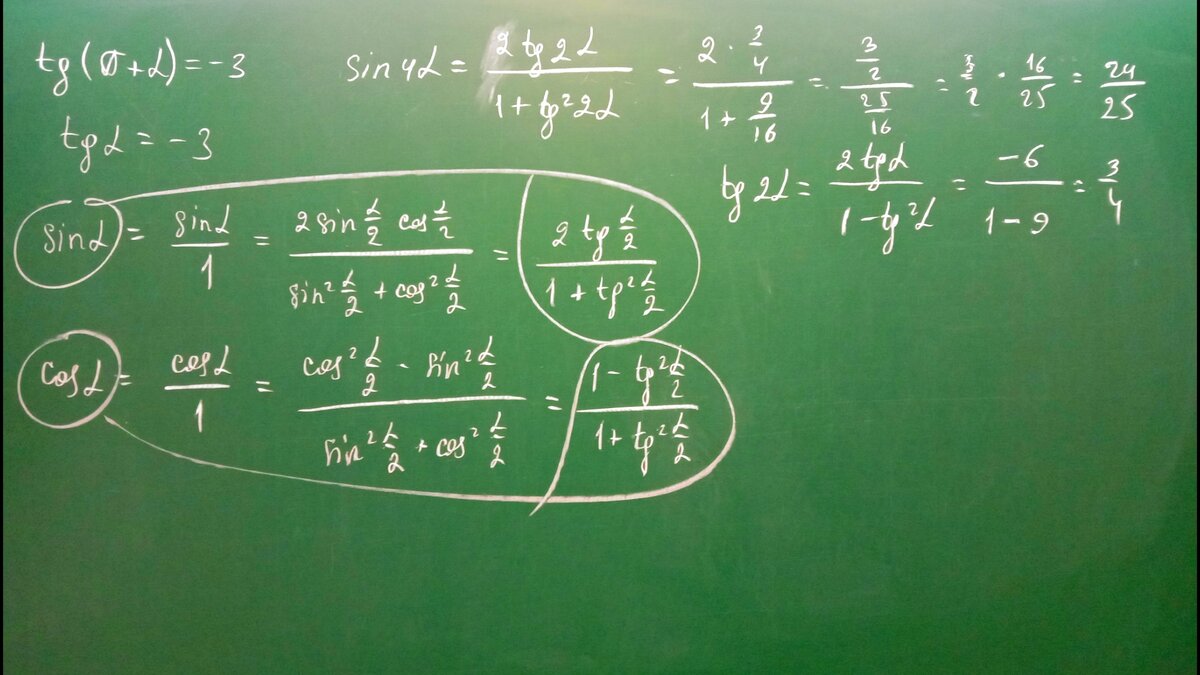 tg(π+α) = -3
sin4α = 2tg2α / 1+tg²2α = 2·3/4 / 1+9/16 = 3/2 / 25/16 = 3/2 · 16/25 = 24/25
tgα = -3
tg2α = 2tgα / 1-tg²α = -6 / 1-9 = 3/4
sinα = sinα / 1 = 2sin α/2 cos α/2 / sin² α/2 + cos² α/2 = 2tg α/2 / 1+tg² α/2
cosα = cosα / 1 = cos² α/2 - sin² α/2 / sin² α/2 + cos² α/2 = 1-tg² α/2 / 1+tg² α/2